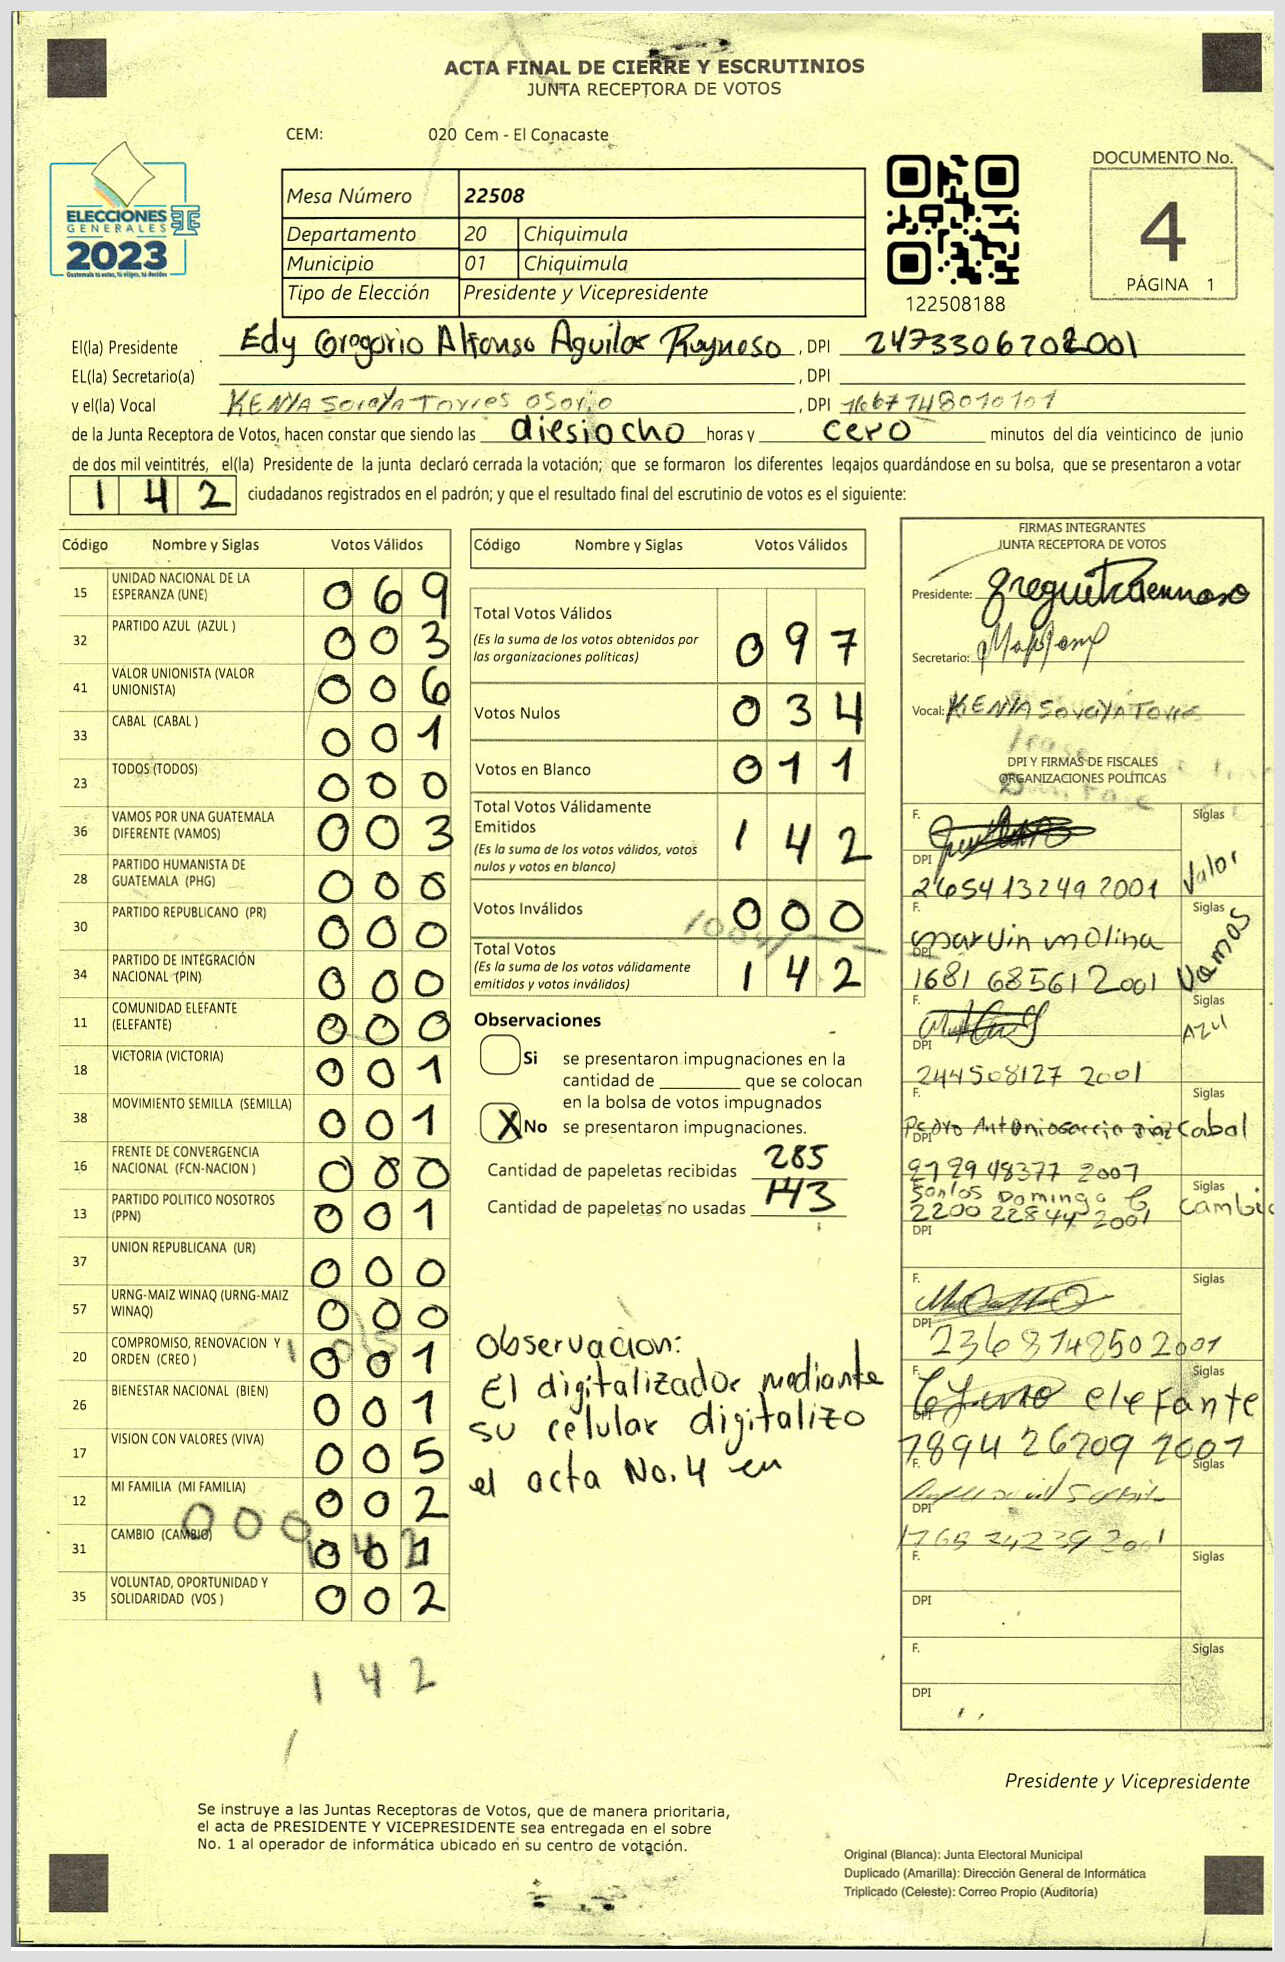 ACTA FINAL DE CIERRE Y ESCRUTINIOS
JUNTA RECEPTORA DE VOTOS
CEM: 020 Cem - El Conacaste
ELECCIONES
GENERALES
2023
Guatemala tú votas, tú eliges, tú decides
Mesa Número 22508
Departamento 20 Chiquimula
Municipio 01 Chiquimula
Tipo de Elección Presidente y Vicepresidente
122508188
DOCUMENTO No.
4
PÁGINA 1
El(la) Presidente Edy Gregorio Alfonso Aguilar Reynoso , DPI 2473306202001
EL(la) Secretario(a) , DPI
y el(la) Vocal KENYA Soraya Torres Osorio , DPI 1667748010101
de la Junta Receptora de Votos, hacen constar que siendo las diesiocho horas y cero minutos del día veinticinco de junio
de dos mil veintitrés, el(la) Presidente de la junta declaró cerrada la votación; que se formaron los diferentes legajos guardándose en su bolsa, que se presentaron a votar
142 ciudadanos registrados en el padrón; y que el resultado final del escrutinio de votos es el siguiente:
Código Nombre y Siglas Votos Válidos
15 UNIDAD NACIONAL DE LA ESPERANZA (UNE) 069
32 PARTIDO AZUL (AZUL ) 003
41 VALOR UNIONISTA (VALOR UNIONISTA) 006
33 CABAL (CABAL ) 001
23 TODOS (TODOS) 000
36 VAMOS POR UNA GUATEMALA DIFERENTE (VAMOS) 003
28 PARTIDO HUMANISTA DE GUATEMALA (PHG) 000
30 PARTIDO REPUBLICANO (PR) 000
34 PARTIDO DE INTEGRACIÓN NACIONAL (PIN) 000
11 COMUNIDAD ELEFANTE (ELEFANTE) 000
18 VICTORIA (VICTORIA) 001
38 MOVIMIENTO SEMILLA (SEMILLA) 001
16 FRENTE DE CONVERGENCIA NACIONAL (FCN-NACION ) 000
13 PARTIDO POLITICO NOSOTROS (PPN) 001
37 UNION REPUBLICANA (UR) 000
57 URNG-MAIZ WINAQ (URNG-MAIZ WINAQ) 000
20 COMPROMISO, RENOVACION Y ORDEN (CREO ) 001
26 BIENESTAR NACIONAL (BIEN) 001
17 VISION CON VALORES (VIVA) 005
12 MI FAMILIA (MI FAMILIA) 002
31 CAMBIO (CAMBIO) 001
35 VOLUNTAD, OPORTUNIDAD Y SOLIDARIDAD (VOS ) 002
142
Código Nombre y Siglas Votos Válidos
Total Votos Válidos 097
(Es la suma de los votos obtenidos por
las organizaciones políticas)
Votos Nulos 034
Votos en Blanco 011
Total Votos Válidamente
Emitidos 142
(Es la suma de los votos válidos, votos
nulos y votos en blanco)
Votos Inválidos 000
Total Votos 142
(Es la suma de los votos válidamente
emitidos y votos inválidos)
Observaciones
Si se presentaron impugnaciones en la
cantidad de ________ que se colocan
en la bolsa de votos impugnados
X No se presentaron impugnaciones.
Cantidad de papeletas recibidas 285
Cantidad de papeletas no usadas 143
Observacion:
El digitalizador mediante
su celular digitalizo
el acta No. 4 en
FIRMAS INTEGRANTES
JUNTA RECEPTORA DE VOTOS
Presidente:
Secretario:
Vocal: KENYA Soraya Torres
DPI Y FIRMAS DE FISCALES
ORGANIZACIONES POLÍTICAS
F. Siglas
DPI 2654132492001 Valor
F. Marvin Molina Siglas
DPI 1681 68561 2001 Vamos
F. Siglas
DPI 244508127 2001 Azul
F. Pedro Antonio Garcia Diaz Siglas
DPI 2729 48377 2007 Cabal
Santos Domingo Siglas
2200 22844 2001 Cambio
DPI
F. Siglas
DPI 2368148502001
F. elefante Siglas
DPI 7894 26209 2001
F. Siglas
DPI
F. Siglas
DPI
F. Siglas
DPI
Presidente y Vicepresidente
Se instruye a las Juntas Receptoras de Votos, que de manera prioritaria,
el acta de PRESIDENTE Y VICEPRESIDENTE sea entregada en el sobre
No. 1 al operador de informática ubicado en su centro de votación.
Original (Blanca): Junta Electoral Municipal
Duplicado (Amarilla): Dirección General de Informática
Triplicado (Celeste): Correo Propio (Auditoría)